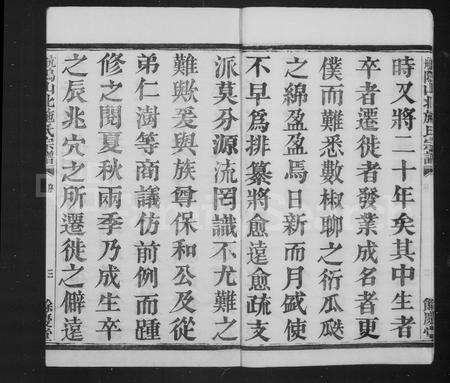 時又將二十年矣其中生者
卒者遷徙者發業成名者更
僕而難悉數椒聊之衍瓜瓞
之綿盈盈焉日新而月盛使
不早為排纂將愈遠愈疏支
派莫分源流罔識不尤難之
難歟爰與族尊保和公及從
弟仁澍等商議仿前例而踵
修之閱夏秋兩季乃成生卒
之辰兆穴之所遷徙之僻遠
山北施氏宗譜
三
餘慶堂